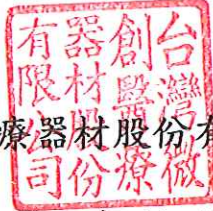 台灣微
創醫療
器材股份
有限公司
療器材股份有